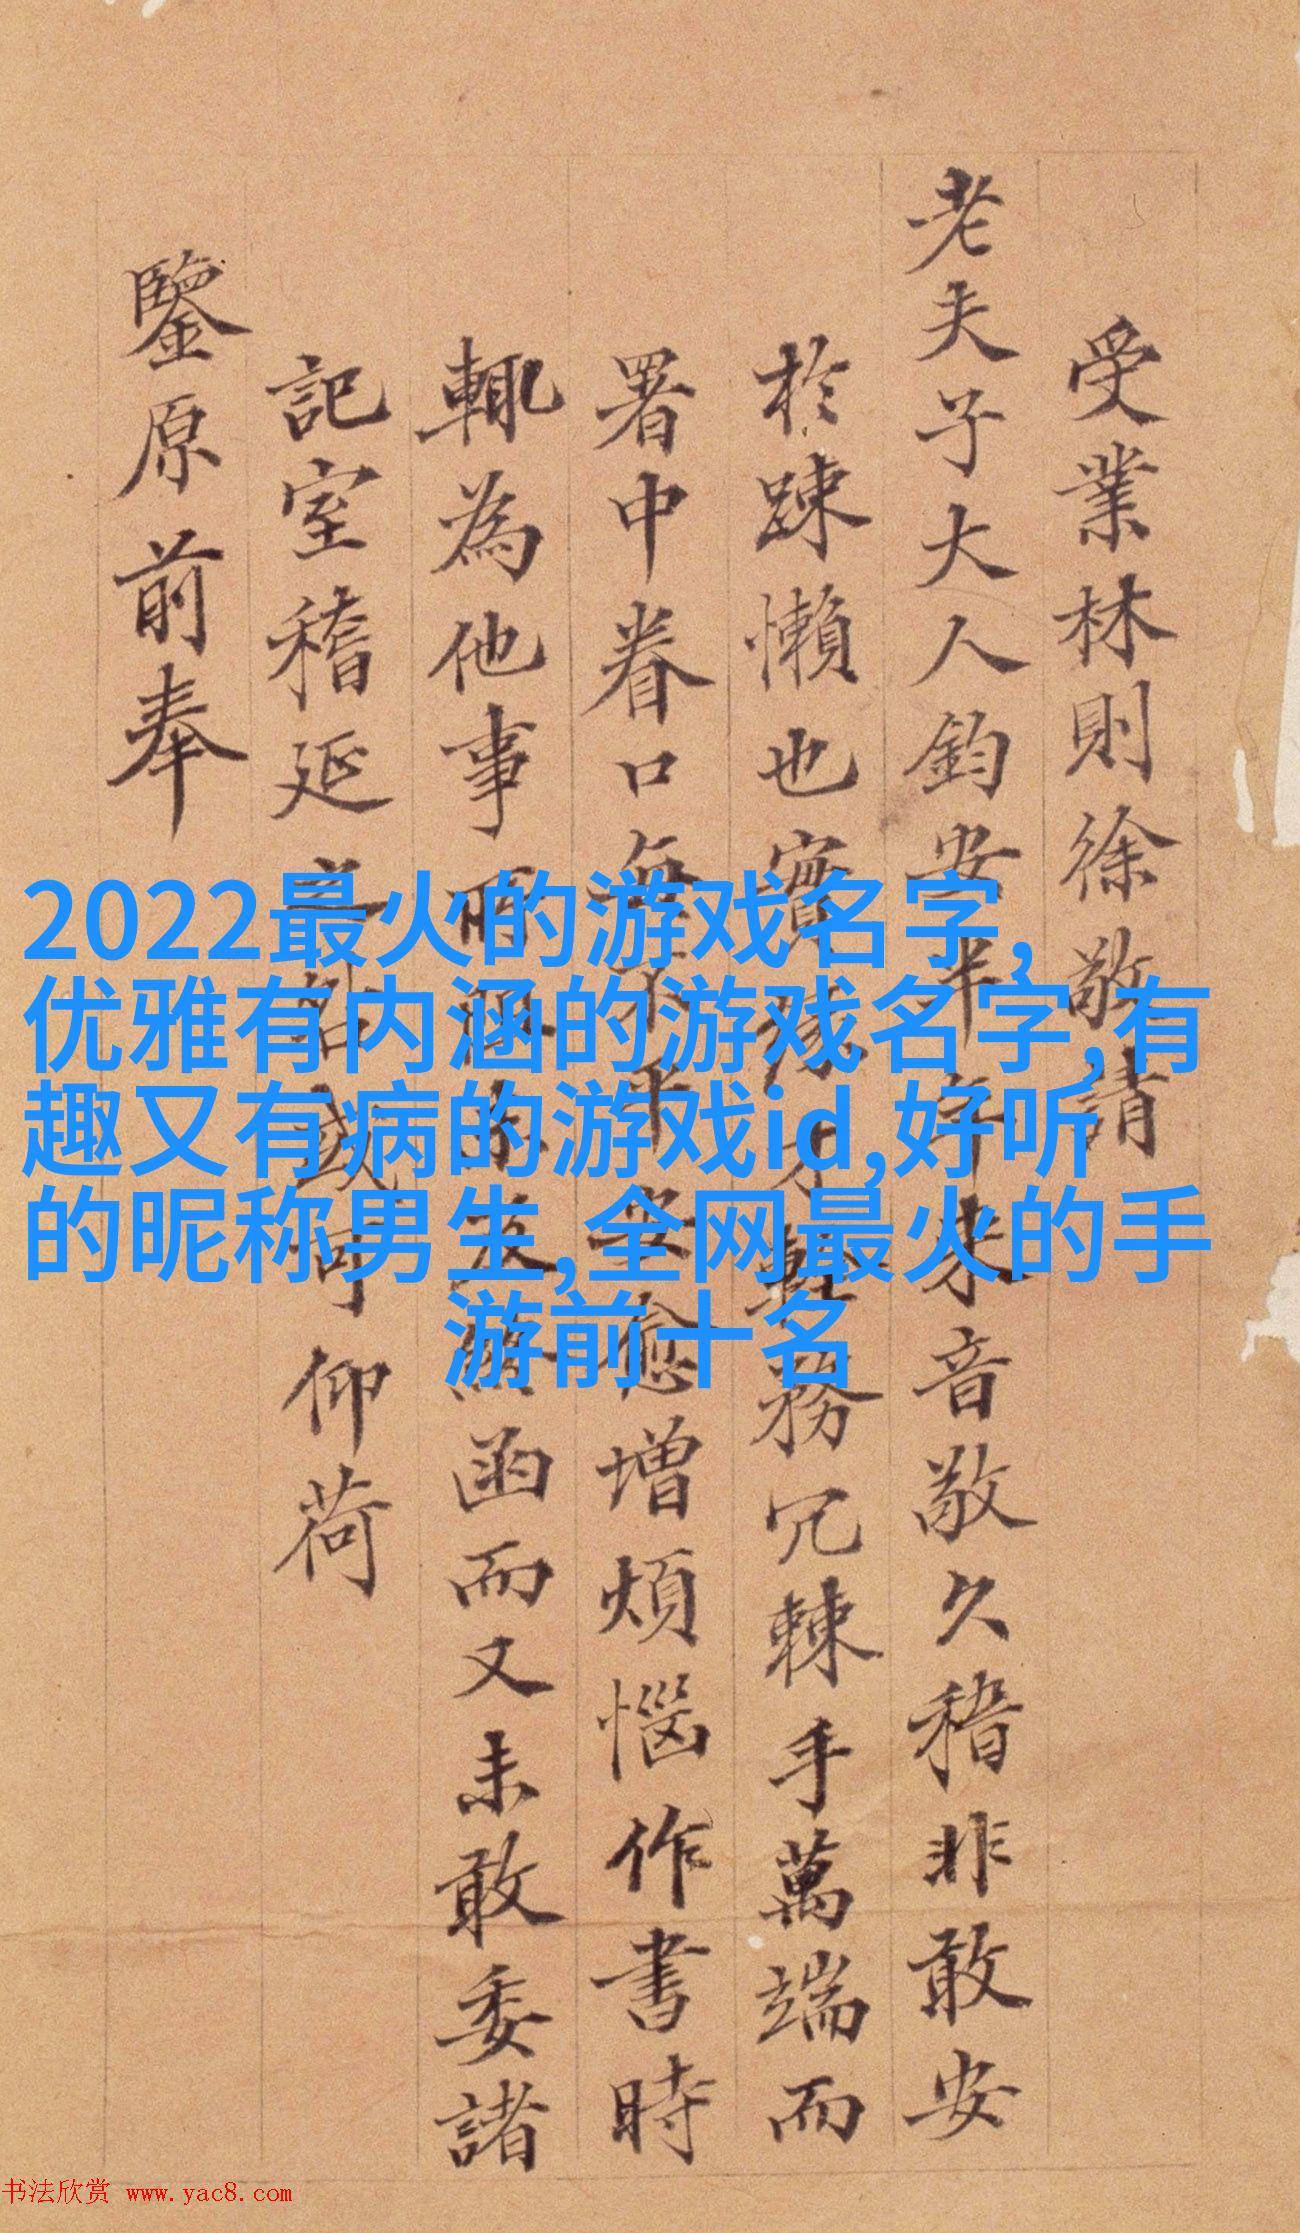 2022最火的游戏名字,
优雅有内涵的游戏名字,有
趣又有病的游戏id,好听
的昵称男生,全网最火的手
游前十名
受業林則徐敬請
老夫子大人鈞安半年來音敬久稽非敢安
於踈懶也實緣才輇務冗棘手萬端而
署中眷口無不平安愈增煩惱作書時
輒為他事函而又未敢委諸
記室稽延之咎或可仰荷
鑒原前奉
书法欣赏 www.yac8.com